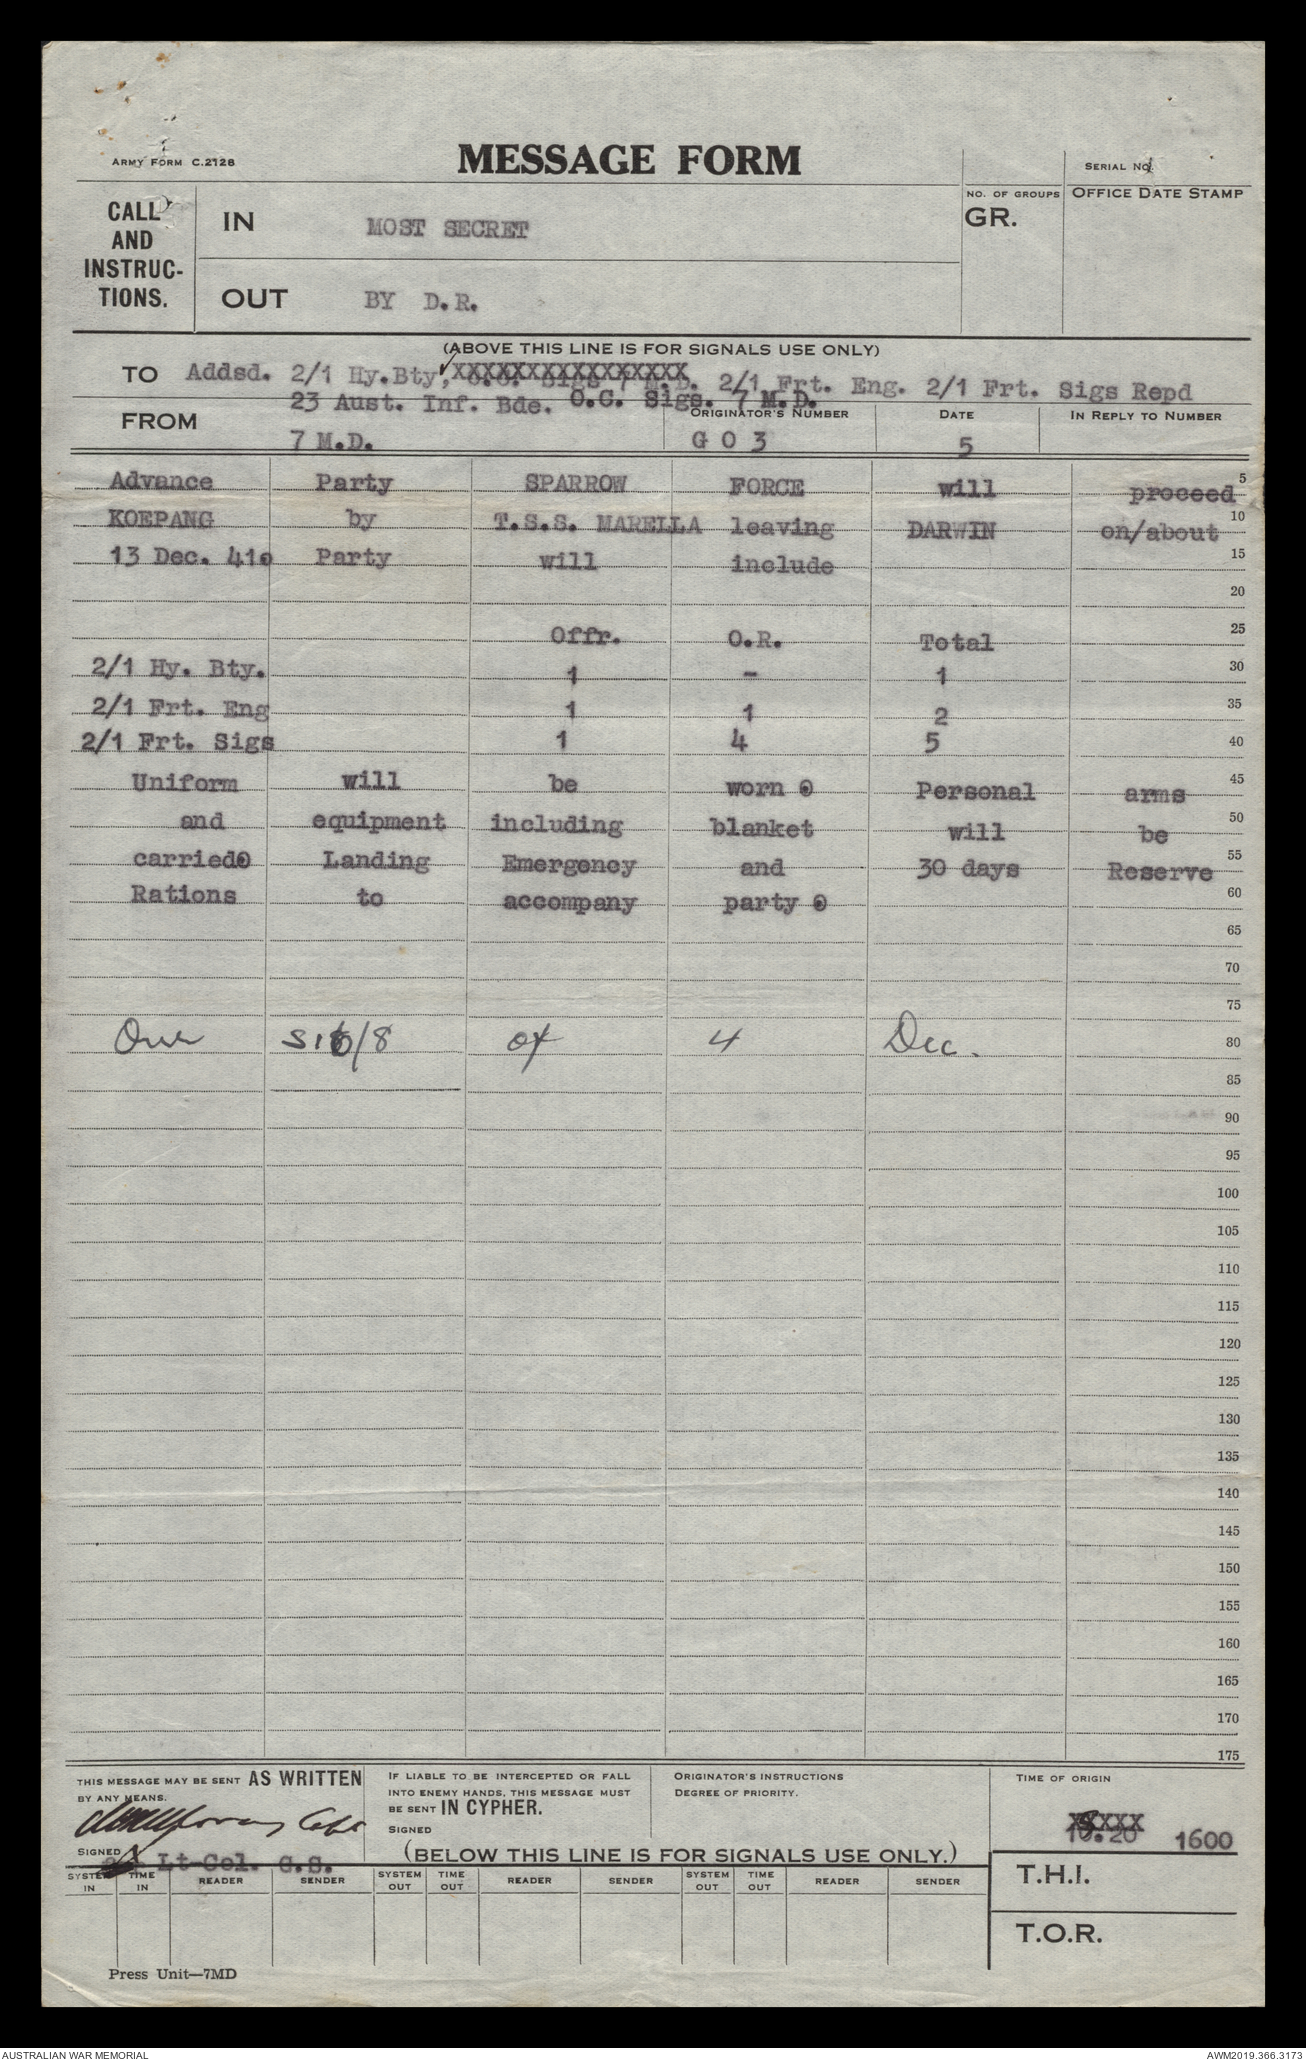 ARMY FORM C.2128
MESSAGE FORM
SERIAL NO.
CALL AND INSTRUC-TIONS.
IN MOST SECRET
NO. OF GROUPS
GR.
OFFICE DATE STAMP
OUT BY D.R.
(ABOVE THIS LINE IS FOR SIGNALS USE ONLY)
TO Addsd. 2/1 Hy.Bty, O.C. Sigs 7 M.D. 2/1 Frt. Eng. 2/1 Frt. Sigs Repd
23 Aust. Inf. Bde. O.C. Sigs. 7 M.D.
FROM 7 M.D.
ORIGINATOR'S NUMBER G O 3
DATE 5
IN REPLY TO NUMBER
Advance Party SPARROW FORCE will proceed 5
KOEPANG by T.S.S. MARELLA leaving DARWIN on/about 10
13 Dec. 41⊙ Party will include 15
20
Offr. O.R. Total 25
2/1 Hy. Bty. 1 - 1 30
2/1 Frt. Eng 1 1 2 35
2/1 Frt. Sigs 1 4 5 40
Uniform will be worn ⊙ Personal arms 45
and equipment including blanket will be 50
carried⊙ Landing Emergency and 30 days Reserve 55
Rations to accompany party ⊙ 60
65
70
75
Our S16/8 of 4 Dec. 80
85
90
95
100
105
110
115
120
125
130
135
140
145
150
155
160
165
170
175
THIS MESSAGE MAY BE SENT AS WRITTEN BY ANY MEANS.
SIGNED Capt
Lt-Col. G.S.
IF LIABLE TO BE INTERCEPTED OR FALL INTO ENEMY HANDS, THIS MESSAGE MUST BE SENT IN CYPHER.
SIGNED
ORIGINATOR'S INSTRUCTIONS
DEGREE OF PRIORITY.
TIME OF ORIGIN
1600
(BELOW THIS LINE IS FOR SIGNALS USE ONLY.)
SYSTEM IN TIME IN READER SENDER SYSTEM OUT TIME OUT READER SENDER SYSTEM OUT TIME OUT READER SENDER
T.H.I.
T.O.R.
Press Unit—7MD
AUSTRALIAN WAR MEMORIAL
AWM2019.366.3173